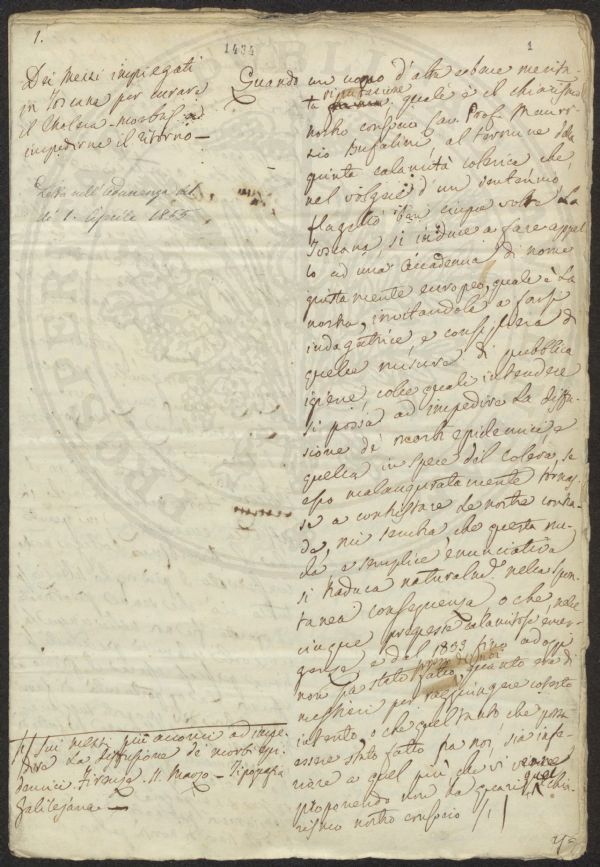 1.
1434
1
Dei Mezzi impiegati
in Toscana per curare
il Cholera-morbus ed
impedirne il ritorno —
Letta nell'adunanza del
dì 1. Aprile 1855
Quando un uomo d'alta e bene merita-
ta riputazione quale è il chiarissimo
nostro consocio Cav. Prof. Mauri-
zio Bufalini, al termine della
quinta calamità colerica che,
nel volgere d'un ventennio
flagellò ben cinque volte la
Toscana, si induce a fare appel-
lo ad una Accademia di nome
giustamente europeo, quale è la
nostra, invitandola a farsi
indagatrice, e consigliera di
quelle misure di pubblica
igiene colle quali intendere
si possa ad impedire la diffu-
sione di morbi epidemici e
quella in specie del colera, se
esso malauguratamente tornas-
se a contristare le nostre contra-
de, mi sembra che questa nu-
da e semplice enunciativa
si traduca naturalm.e nella spon-
tanea conseguenza, o che, nelle
cinque pregresse calamitose emer-
genze, e dal 1835 fino ad oggi
non sia stato fatto quanto era di
mestieri per raggiungere cotesto
intento, o che quel tanto che possa
essere stato fatto fra noi, sia infe-
riore a quel più che si venne
proponendo non ha guari quel chia-
rissimo nostro consocio /1/
/1/ Sui mezzi più acconci ad impe-
dire la diffusione dei morbi epi-
demici. Firenze. 11. Marzo — Tipografia
Galilejana —